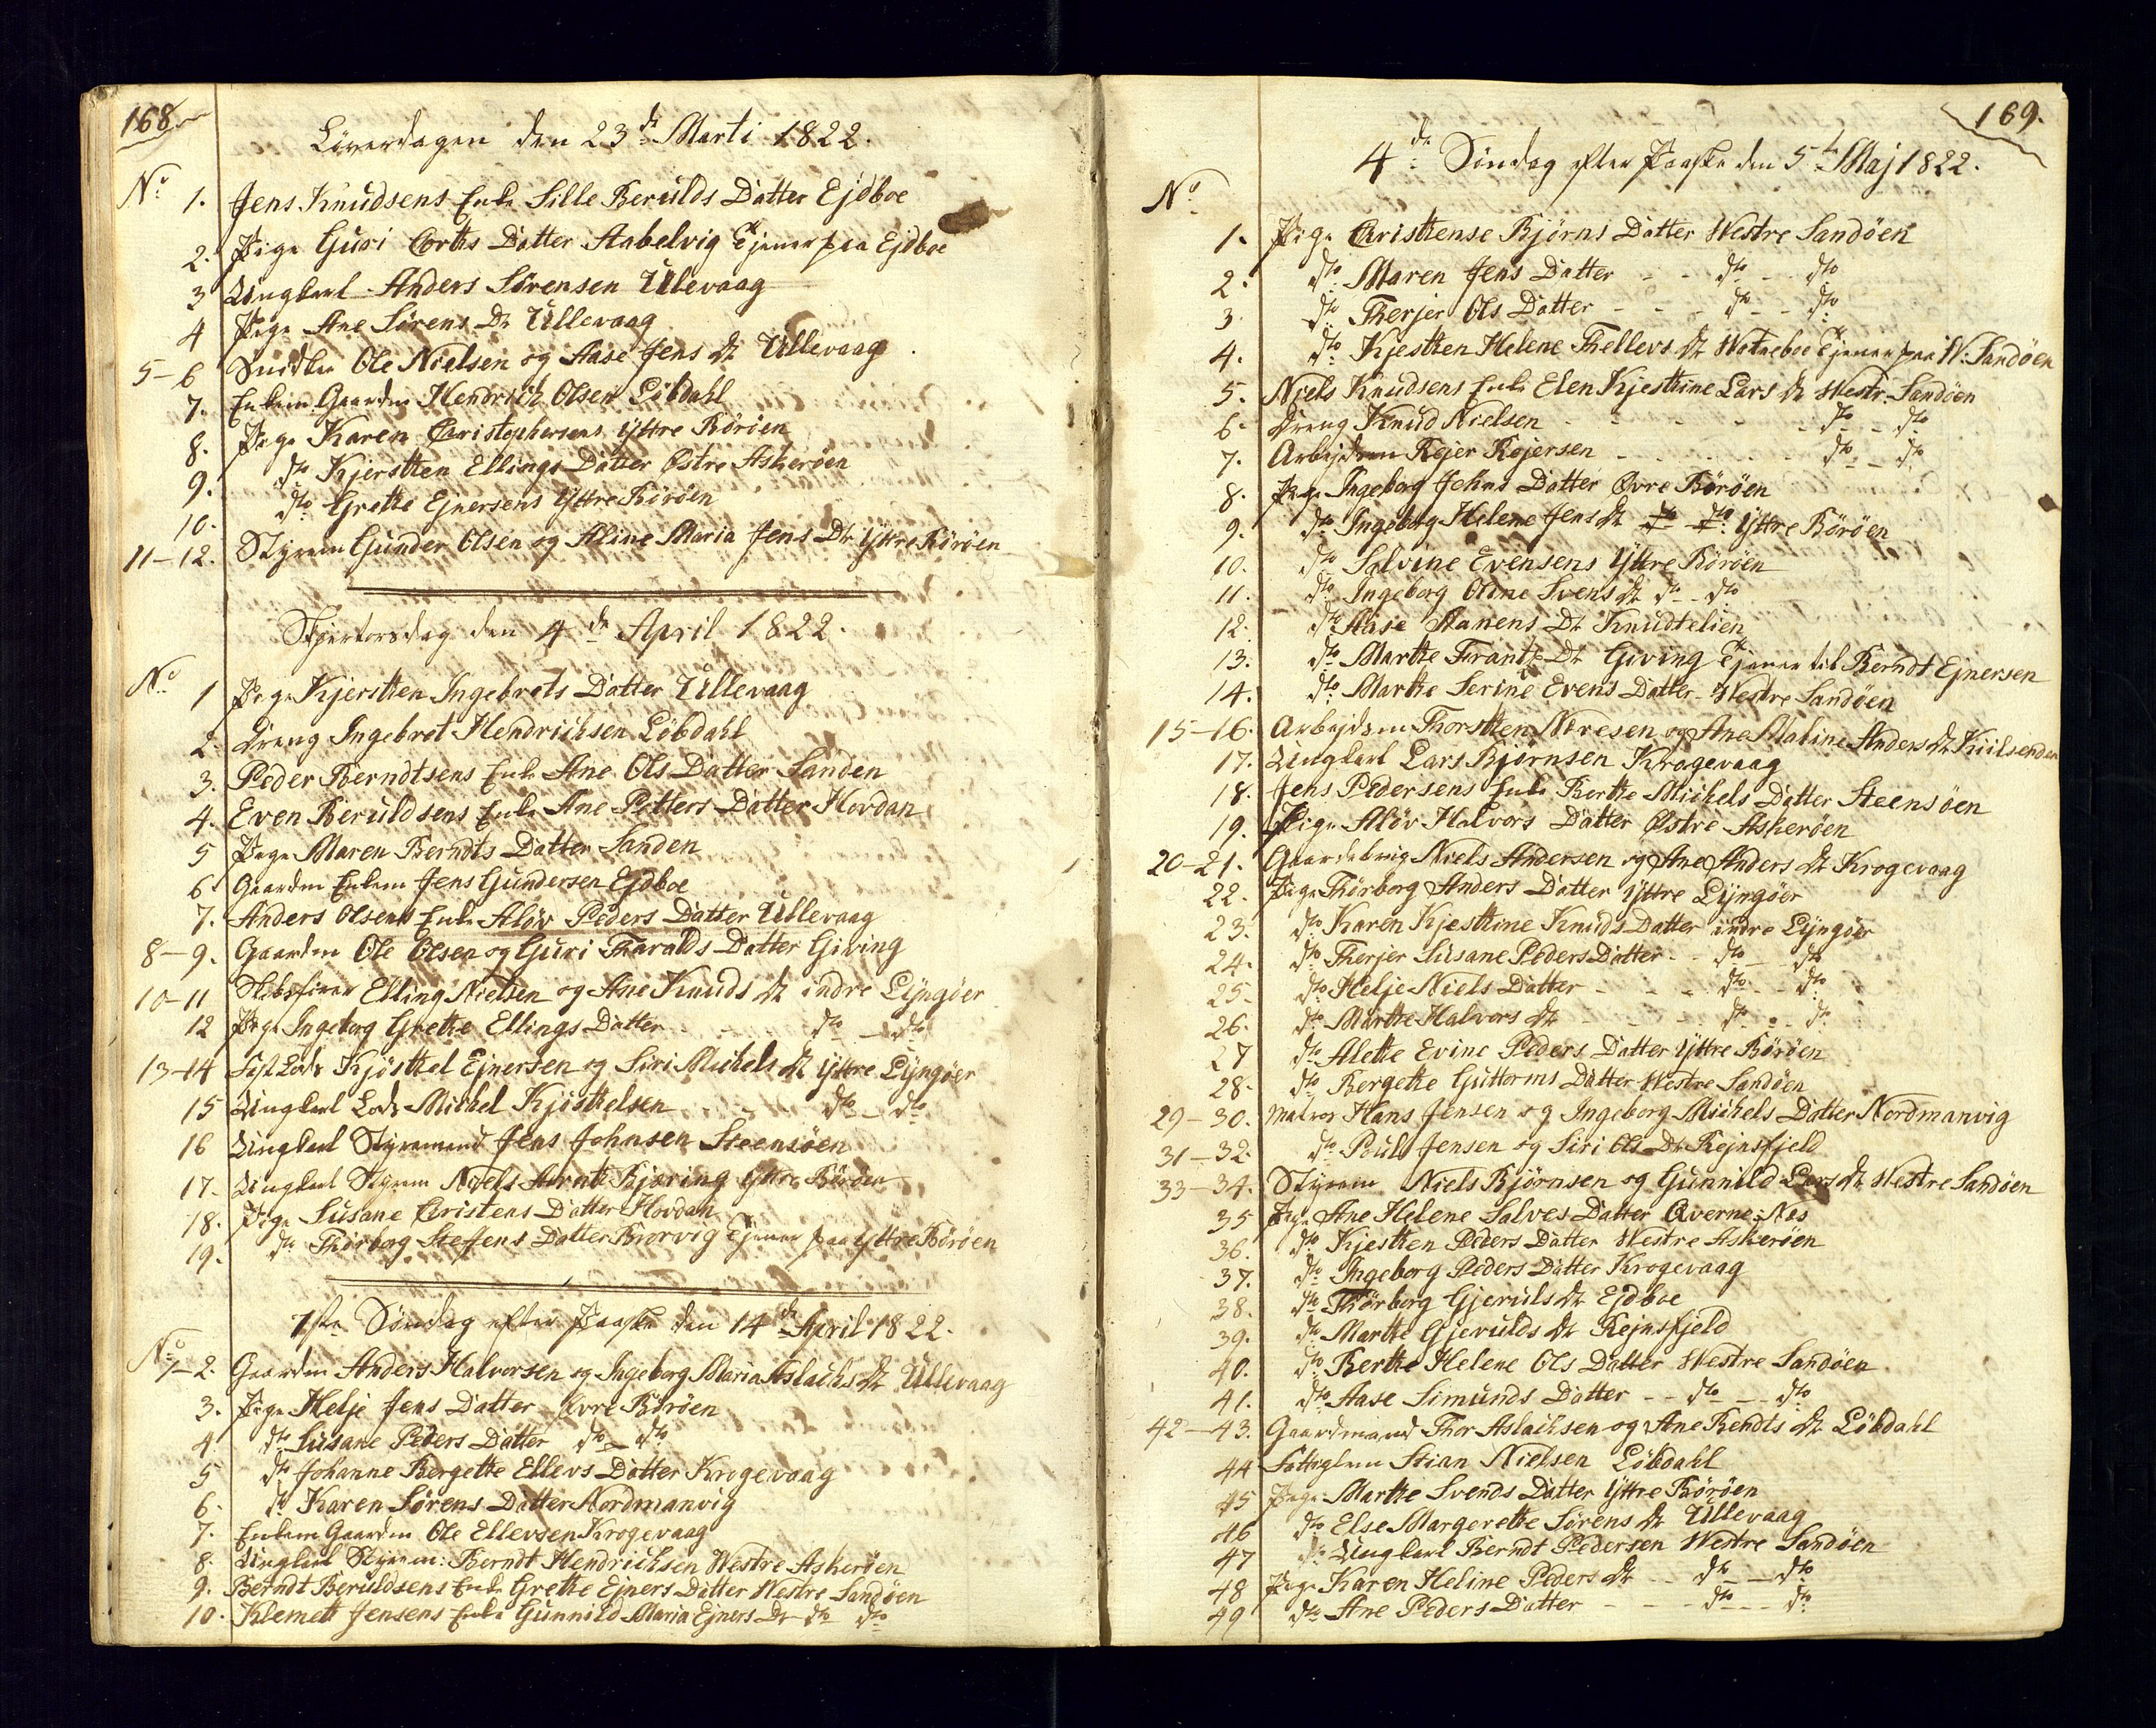 168
Löverdagen den 23de Marti 1822.
No
1. Jens Knudsens Enke Sille Berulds Datter Ejdboe
2. Pige Guri Corths Datter Aabelvig Tjener paa Ejdboe
3 Ungkarl Anders Sörensen Ullevaag
4 Pige Ane Sörens Dr Ullevaag
5-6 Ole Nielsen og Aase Jens dr Ullevaag
7. Enkem Gaardm Hendrich Olsen Löbdahl
8. Pige Karen Christophersens Yttre Böröen
9. dto Kjersthen Ellings Datter Östre Askeröen
10. dto Grethe Ejnersens Yttre Böröen
11-12. Styrem Gunder Olsen og Aline Maria Jens Dr Yttre Böröen
Skjertorsdag den 4de April 1822.
No
1 Pige Kjersthen Ingebrets Datter Ullevaag
2. Dreng Ingebret Hendrichsen Löbdahl
3. Peder Berndtsens Enke Ane Ols Datter Sanden
4. Even Beruldsens Enke Ane Petters Datter Hovdan
5 Pige Maren Berndts Datter Sanden
6 Gaardm Enkem Jens Gundersen Ejdboe
7. Anders Olsens Enke Alöv Peders Datter Ullevaag
8-9. Gaardm Ole Olsen og Guri Tharalds Datter Giving
10-11 Elling Nielsen og Ane Knuds dr indre Lyngöer
12 Pige Ingeborg Grethe Ellings Datter dto dto
13-14 Lods Kjösthel Ejnersen og Siri Michels dr Yttre Lyngöer
15 Ungkarl Lods Michel Kjösthelsen dto dto
16 Ungkarl Styremand Jens Johnsen Steensöen
17. Ungkarl Styrem Niels Arnth Bjæring Yttre Böröen
18. Pige Susane Christens Datter Hovdan
19. dto Thorborg Steffens Datter Brorvig Tjener paa Yttre Böröen
1ste Söndag efter Paaske den 14de April 1822.
No
1-2. Gaardm Anders Halvorsen og Ingeborg Maria Aslachs dr Ullevaag
3. Pige Helje Jens Datter Övre Böröen
4. dto Susane Peders Datter dto dto
5 dto Johanne Bergethe Ellevs Datter Krogevaag
6. dto Karen Sörens Datter Nordmanvig
7. Enkem Gaardm Ole Ellevsen Krogevaag
8. Ungkarl Styrem: Berndt Hendrichsen Westre Askeröen
9. Berndt Beruldsens Enke Grethe Ejners Datter Westre Sandöen
10. Klemett Jensens Enke Gunnild Maria Ejners Dr dto dto
169.
4de Söndag efter Paaske den 5te Maj 1822.
No
1. Pige Christhense Bjørns Datter Westre Sandöen
2. dto Maren Jens Datter dto dto
3. dto Therjer Ols Datter dto dto
4. dto Kjesthen Helene Thellevs dr Watneboe Tjener paa W: Sandöen
5. Niels Knudsens Enke Elen Kjesthine Lars dr Westr: Sandöen
6. Dreng Knud Nielsen dto dto
7. Arbejdsm Rejer Rejersen dto dto
8. Pige Ingeborg Johns Datter Övre Böröen
9. dto Ingeborg Helene Jens dr dto dto Yttre Böröen
10. dto Salvine Evensens Yttre Böröen
11. dto Ingeborg Oline Svens dr dto dto
12. dto Aase Aanens Dr Knudtelien
13. dto Marthe Frants Dr Giving Tjener til Berndt Ejnersen
14. dto Marthe Serine Evens Datter Westre Sandöen
15-16. Arbejdsm Thorsthen Niresen og Ane Maline Anders dr Kiilsenden
17. Ungkarl Lars Bjørnsen Krogevaag
18. Jens Pedersens Enke Berthe Michels Datter Steensöen
19. Pige Alöv Halvors Datter Östre Askeröen
20-21. Niels Andersen og Ane Anders dr Krogevaag
22. Pige Thorborg Anders Datter Yttre Lyngöer
23. dto Karen Kjesthine Knuds Datter indre Lyngöer
24. dto Therjer Susane Peders Datter dto dto
25. dto Helje Niels Datter dto dto
26. dto Marthe Halvors dr dto dto
27 dto Alethe Evine Peders Datter Yttre Böröen
28. dto Bergethe Guttorms Datter Westre Sandöen
29-30. Matros Hans Jensen og Ingeborg Michels Datter Nordmanvig
31-32. dto Poul Jensen og Siri Ols Dr Rejnsfjeld
33-34. Styrem Niels Bjørnsen og Gunnild Lars dr Westre Sandöen
35 Pige Ane Helene Salves Datter Qverne-Næs
36. dto Kjesthen Peders Datter Westre Askeröen
37. dto Ingeborg Peders Datter Krogevaag
38. dto Thorborg Gjeruls dr Ejdboe
39. dto Marthe Gjerulds dr Rejnsfjeld
40. dto Berthe Helene Ols Datter Westre Sandöen
41. dto Aase Simunds Datter dto dto
42-43. Gaardmand Thor Aslachsen og Ane Bendts dr Löbdahl
44 Stian Nielsen Löbdahl
45 Pige Marthe Svends Datter Yttre Böröen
46 dto Else Margerethe Sörens dr Ullevaag
47 Ungkarl Berndt Pedersen Westre Sandöen
48 Pige Karen Heline Peders dr dto dto
49 dto Ane Peders Datter dto dto